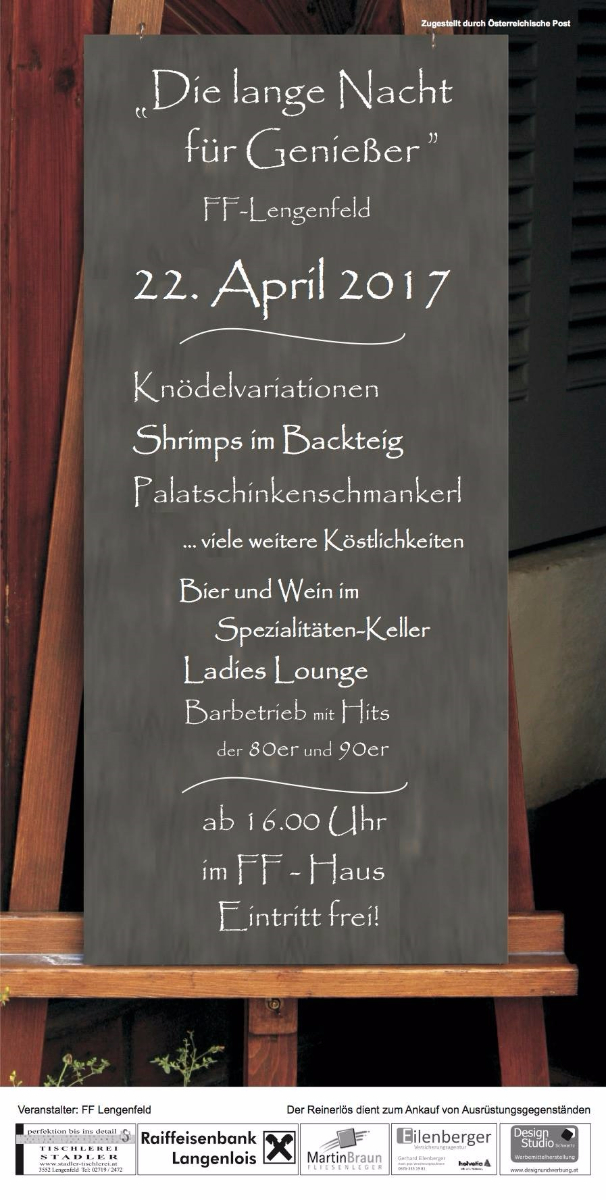 Zugestellt durch Österreichische Post
„Die lange Nacht
für Genießer"
FF-Lengenfeld
22. April 2017
Knödelvariationen
Shrimps im Backteig
Palatschinkenschmankerl
... viele weitere Köstlichkeiten
Bier und Wein im
Spezialitäten-Keller
Ladies Lounge
Barbetrieb mit Hits
der 80er und 90er
ab 16.00 Uhr
im FF - Haus
Eintritt frei!
Veranstalter: FF Lengenfeld
Der Reinerlös dient zum Ankauf von Ausrüstungsgegenständen
perfektion bis ins detail
TISCHLEREI
STADLER
www.stadler-tischlerei.at
3552 Lengenfeld Tel: 02719 / 2472
Raiffeisenbank
Langenlois
MartinBraun
FLIESENLEGER
Eilenberger
Versicherungsagentur
Gerhard Eilenberger
helvetia
Design
Studio
Werbemittelherstellung
www.designundwerbung.at